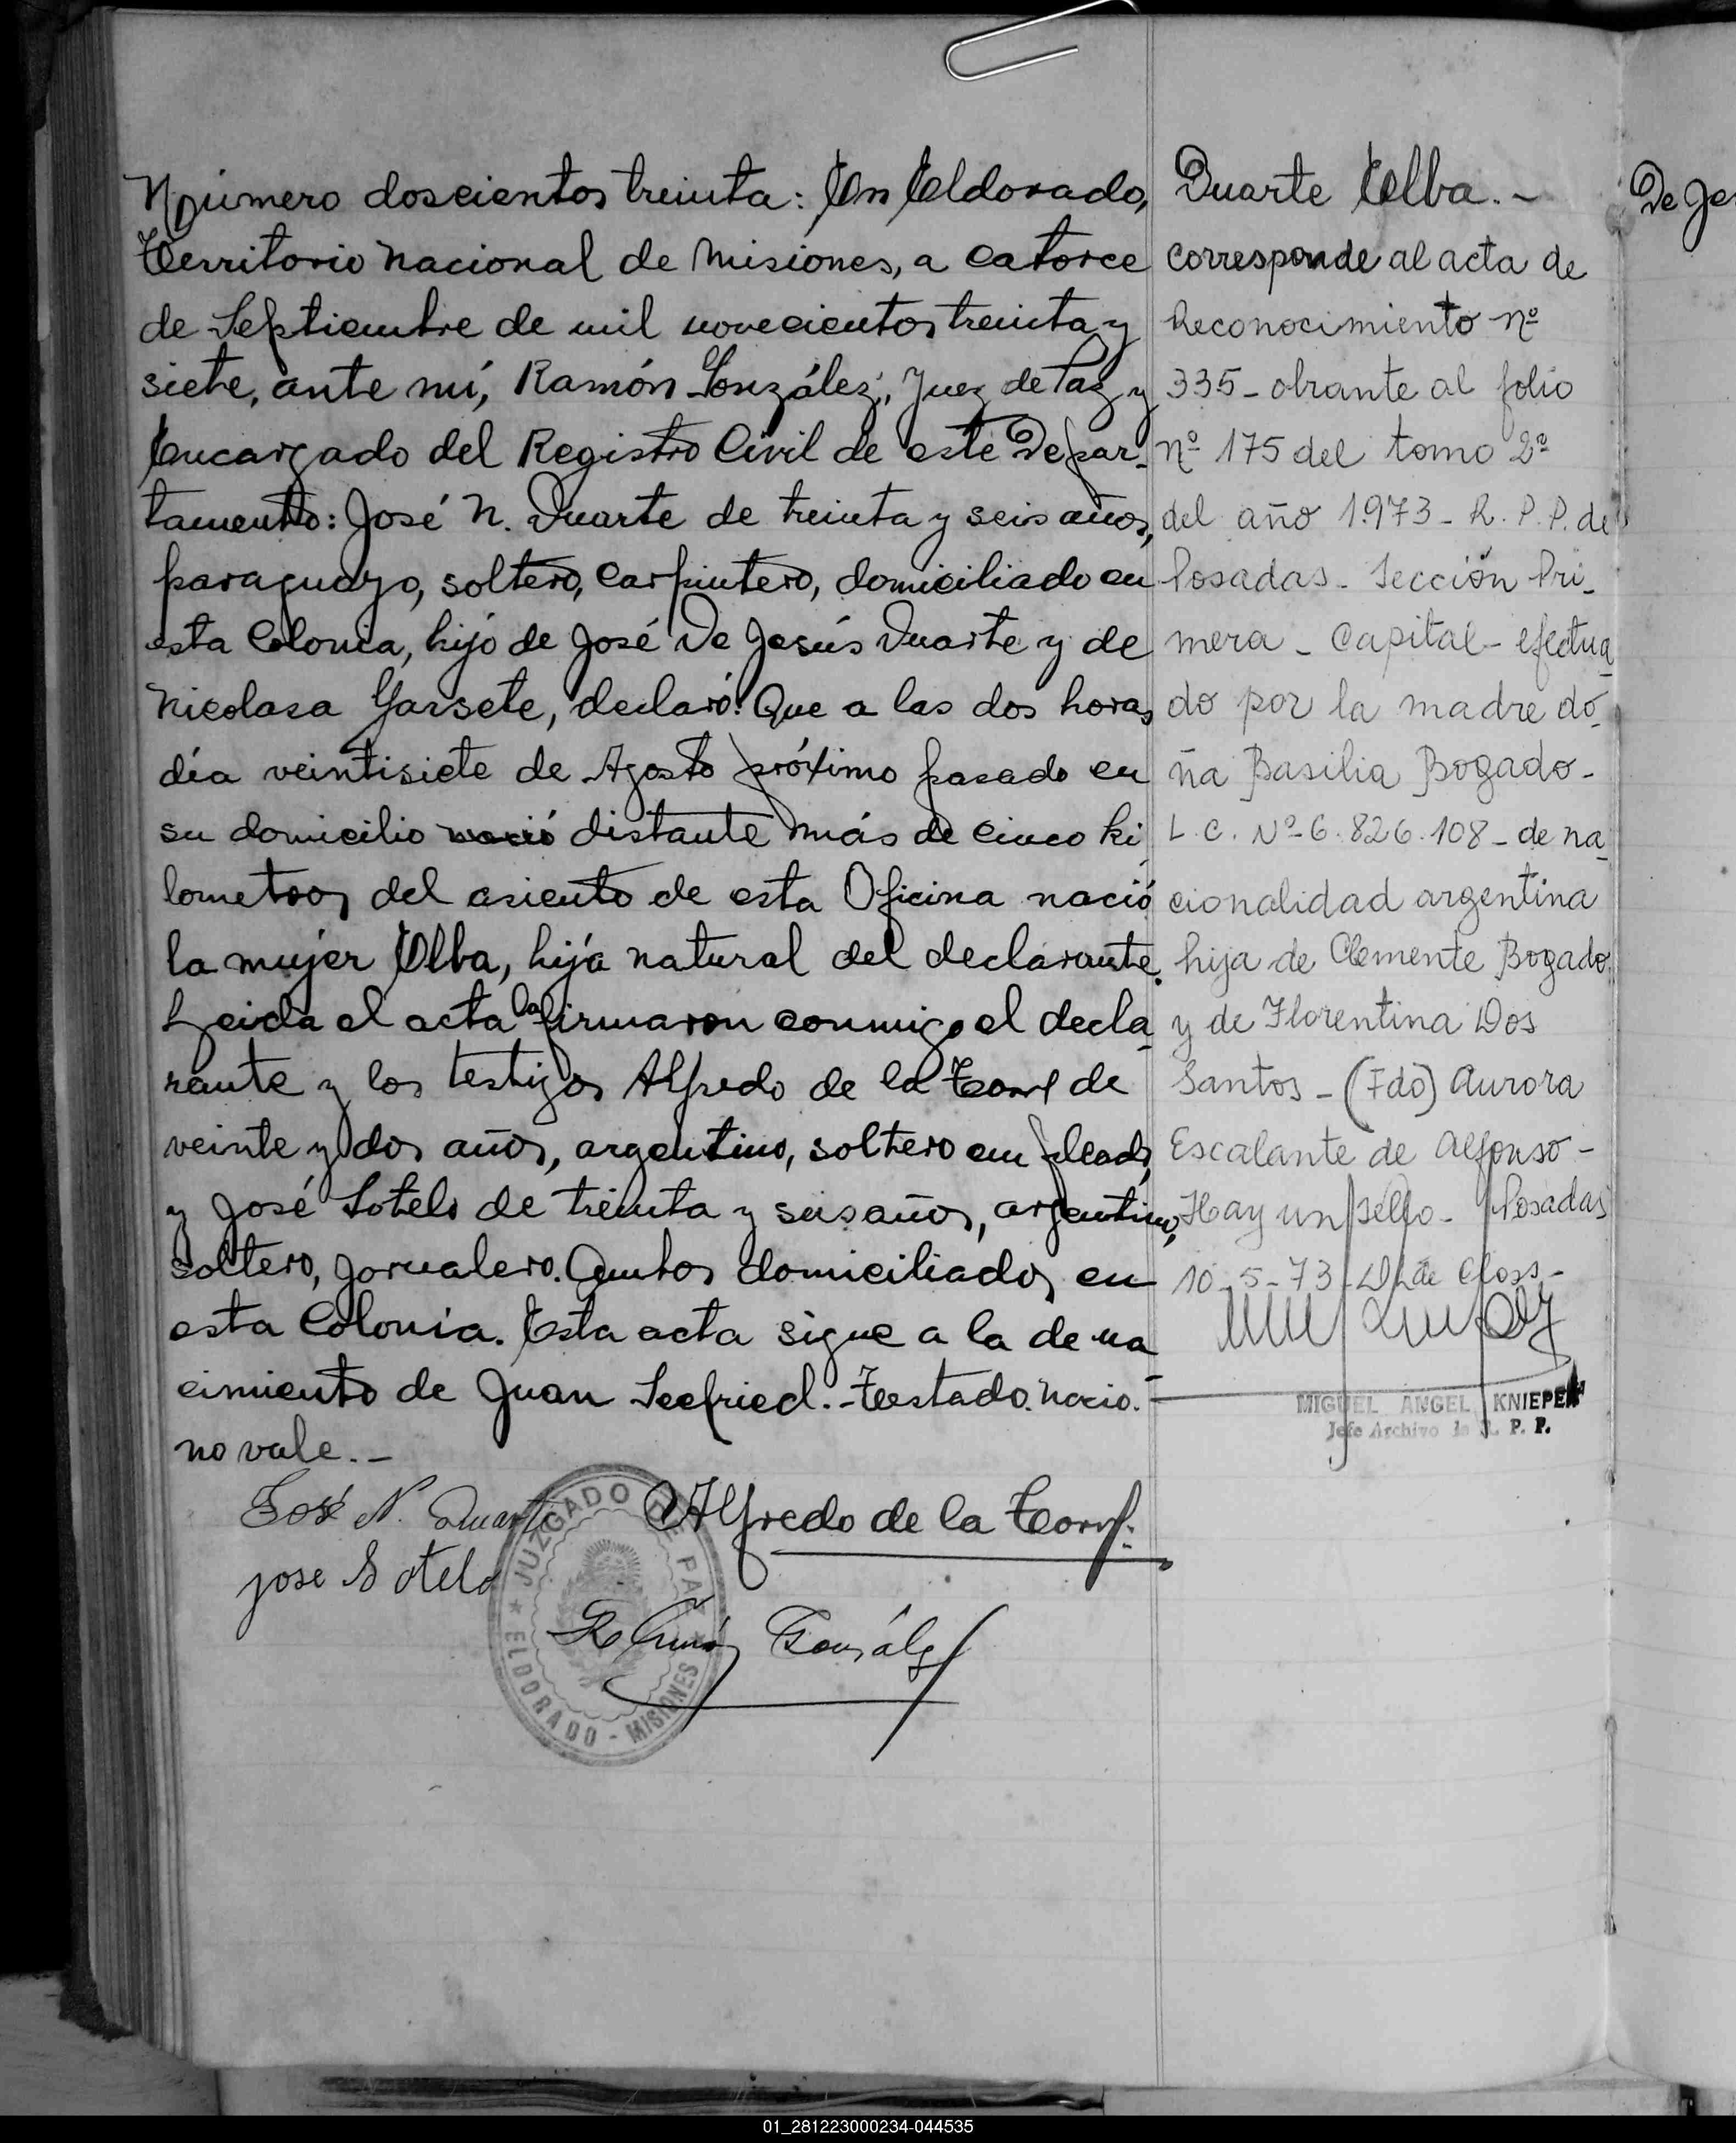 Número doscientos treinta: En Eldorado,
Territorio Nacional de Misiones, a catorce
de Septiembre de mil novecientos treinta y
siete, ante mí, Ramón González, Juez de Paz y
Encargado del Registro Civil de este Depar-
tamento: José N. Duarte de treinta y seis años,
paraguayo, soltero, carpintero, domiciliado en
esta Colonia, hijo de José De Jesús Duarte y de
Nicolasa Garsete, declaró: Que a las dos horas
día veintisiete de Agosto próximo pasado en
su domicilio nació distante más de cinco ki
lometros del asiento de esta Oficina nació
la mujer Elba, hija natural del declarante.
Leida el acta la firmaron conmigo el decla-
rante y los testigos Alfredo de la Torre de
veinte y dos años, argentino, soltero empleado,
y José Sotelo de treinta y seis años, argentino,
soltero, jornalero. Ambos domiciliados en
esta Colonia. Esta acta sigue a la de na-
cimiento de Juan Seefried.- Testado. nacio.-
no vale.-
José N. Duarte
Alfredo de la Torre.
jose Sotelo
Ramón González
JUZGADO DE PAZ
ELDORADO - MISIONES
Duarte Elba.-
Corresponde al acta de
Reconocimiento nº
335- obrante al folio
nº 175 del tomo 2º
del año 1.973- R.P.P. de
Posadas- Sección Pri-
mera- Capital- efectua-
do por la madre do-
ña Basilia Bogado-
L.C. Nº 6.826.108- de na-
cionalidad argentina
hija de Clemente Bogado
y de Florentina Dos
Santos- (Fdo) Aurora
Escalante de Alfonso-
Hay un sello- Posadas
10-5-73- de Closs-
MIGUEL ANGEL KNIEPER
Jefe Archivo R. P. P.
De Je
01_281223000234-044535